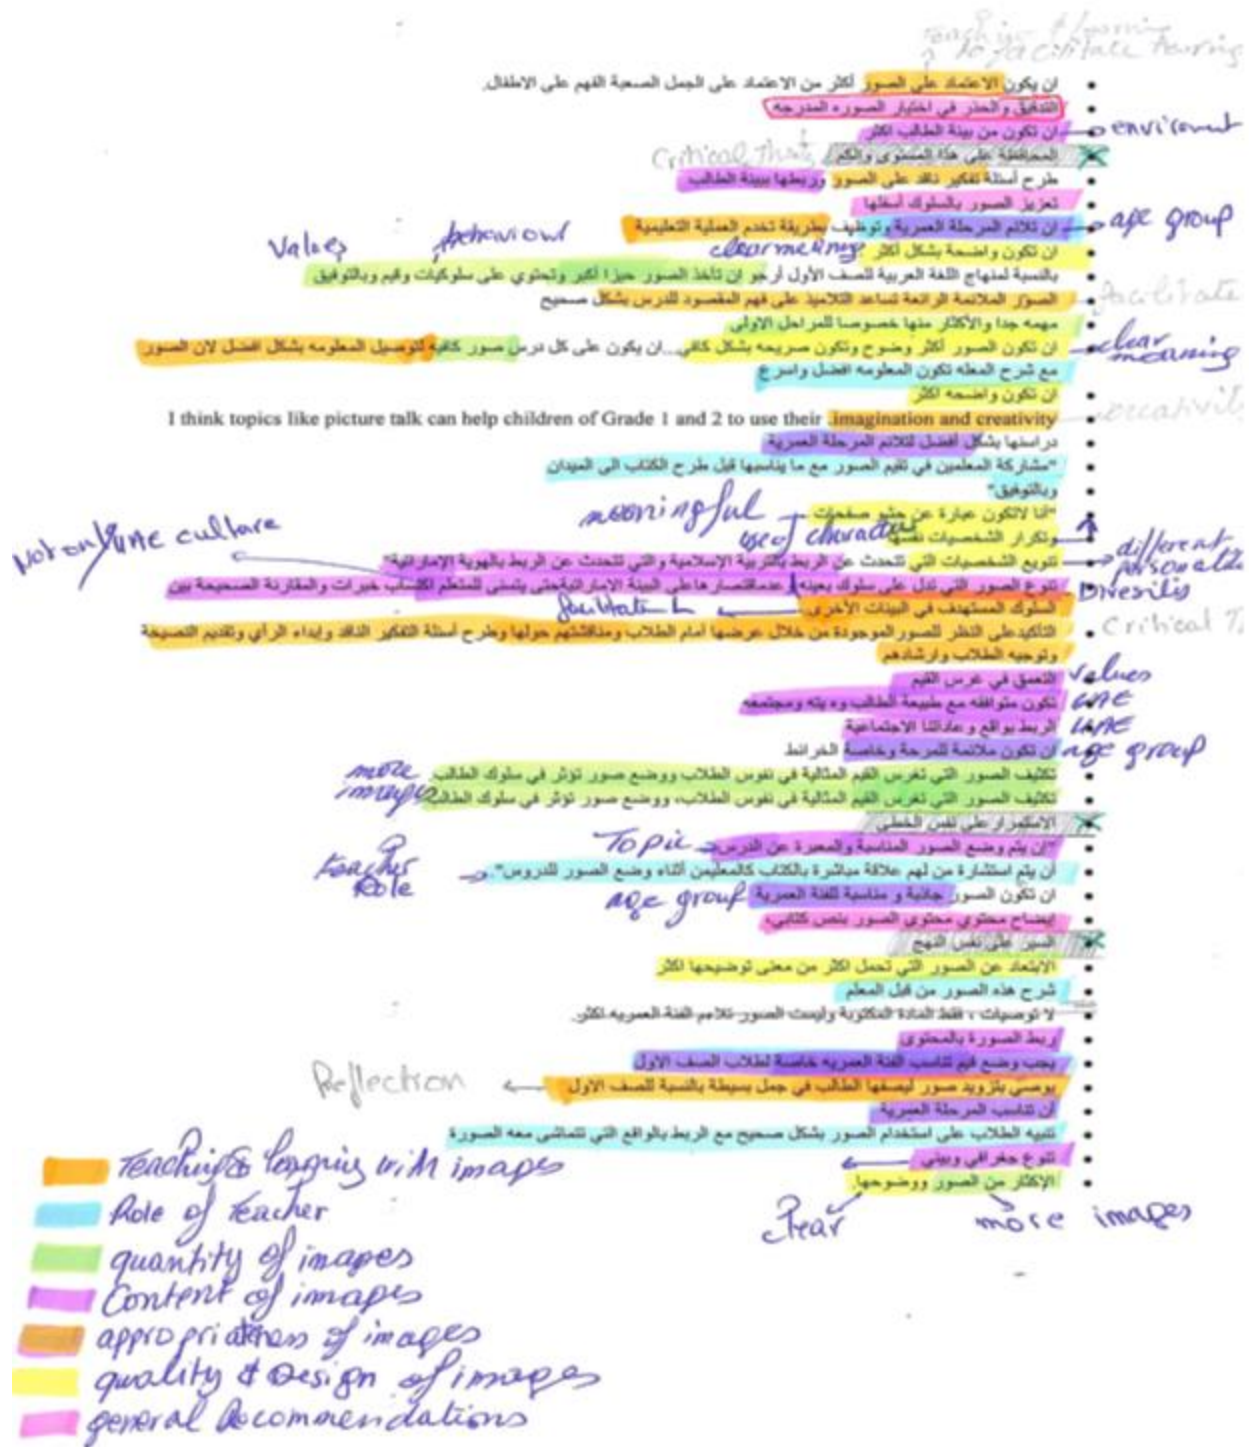 to facilitate
ان يكون الاعتماد على الصور أكثر من الاعتماد على الجمل الصعبة الفهم على الاطفال.
التدقيق والحذر في اختيار الصوره المدرجه
ان تكون من بيئة الطالب اكثر
enviroment
المحافظة على هذا المستوى والكم
Critical
طرح أسئلة تفكير ناقد على الصور وربطها ببيئة الطالب
تعزيز الصور بالسلوك أسفلها
ان تلائم المرحلة العمرية وتوظيف بطريقة تخدم العملية التعليمية
age group
Values
behaviour
clear meaning
ان تكون واضحة بشكل أكثر
بالنسبة لمنهاج اللغة العربية للصف الأول أرجو ان تأخذ الصور حيزا أكبر وتحتوي على سلوكيات وقيم وبالتوفيق
الصور الملائمة الرائعة تساعد التلاميذ على فهم المقصود للدرس بشكل صحيح
facilitate
مهمه جدا والأكثار منها خصوصا للمراحل الاولى
ان تكون الصور أكثر وضوح وتكون صريحه بشكل كافي...ان يكون على كل درس صور كافيه لتوصيل المعلومه بشكل افضل لان الصور
clear meaning
مع شرح المعله تكون المعلومه افضل واسرع
ان تكون واضحه اكثر
I think topics like picture talk can help children of Grade 1 and 2 to use their .imagination and creativity
دراستها بشكل أفضل لتلائم المرحلة العمرية
"مشاركة المعلمين في تقيم الصور مع ما يناسبها قبل طرح الكتاب الى الميدان
وبالتوفيق"
meaningful
"أنا لاتكون عبارة عن حشو صفحات
use of
وتكرار الشخصيات نفسها
Not only UAE culture
different
تنويع الشخصيات التي تتحدث عن الربط بالتربية الإسلامية والتي تتحدث عن الربط بالهوية الإماراتية"
تنوع الصور التي تدل على سلوك بعينه عدم اقتصارها على البيئة الاماراتية حتى يتسنى للمتعلم اكتساب خبرات والمقارنة الصحيحة بين
السلوك المستهدف في البيئات الأخرى.
التأكيد على النظر للصور الموجودة من خلال عرضها أمام الطلاب ومناقشتهم حولها وطرح أسئلة التفكير الناقد وإبداء الرأي وتقديم النصيحة
Critical
وتوجيه الطلاب وارشادهم
التعمق في غرس القيم
values
تكون متوافقه مع طبيعة الطالب وه يته ومجتمعه
UAE
الربط بواقع وعاداتنا الاجتماعية
UAE
ان تكون ملائمة للمرحة وخاصة الخرائط
age group
more images
تكثيف الصور التي تغرس القيم المثالية في نفوس الطلاب ووضع صور تؤثر في سلوك الطالب.
تكثيف الصور التي تغرس القيم المثالية في نفوس الطلاب، ووضع صور تؤثر في سلوك الطالب
الاستمرار على نفس الخطى
Topic
"ان يتم وضع الصور المناسبة والمعبرة عن الدرس
teacher Role
أن يتم استشارة من لهم علاقة مباشرة بالكتاب كالمعليمن أثناء وضع الصور للدروس".
age group
ان تكون الصور جاذبة و مناسبة للفئة العمرية
إيضاح محتوي محتوى الصور بنص كتابي.
السير على نفس النهج
الابتعاد عن الصور التي تحمل اكثر من معنى توضيحها اكثر
شرح هذه الصور من قبل المعلم
لا توصيات ، فقط المادة المكتوبة وليست الصور تلاءم الفئة العمريه اكثر.
ربط الصورة بالمحتوى
يجب وضع قيم تناسب الفئة العمريه خاصة لطلاب الصف الاول
Reflection
يوصي بتزويد صور ليصفها الطالب في جمل بسيطة بالنسبة للصف الاول.
أن تناسب المرحلة العمرية
تنبيه الطلاب على استخدام الصور بشكل صحيح مع الربط بالواقع التي تتماشى معه الصورة
تنوع جغرافي وبيئي
الإكثار من الصور ووضوحها.
clear
more images
Teaching & learning with images
Role of Teacher
quantity of images
Content of images
appropriatness of images
quality & Design of images
general Recommendations